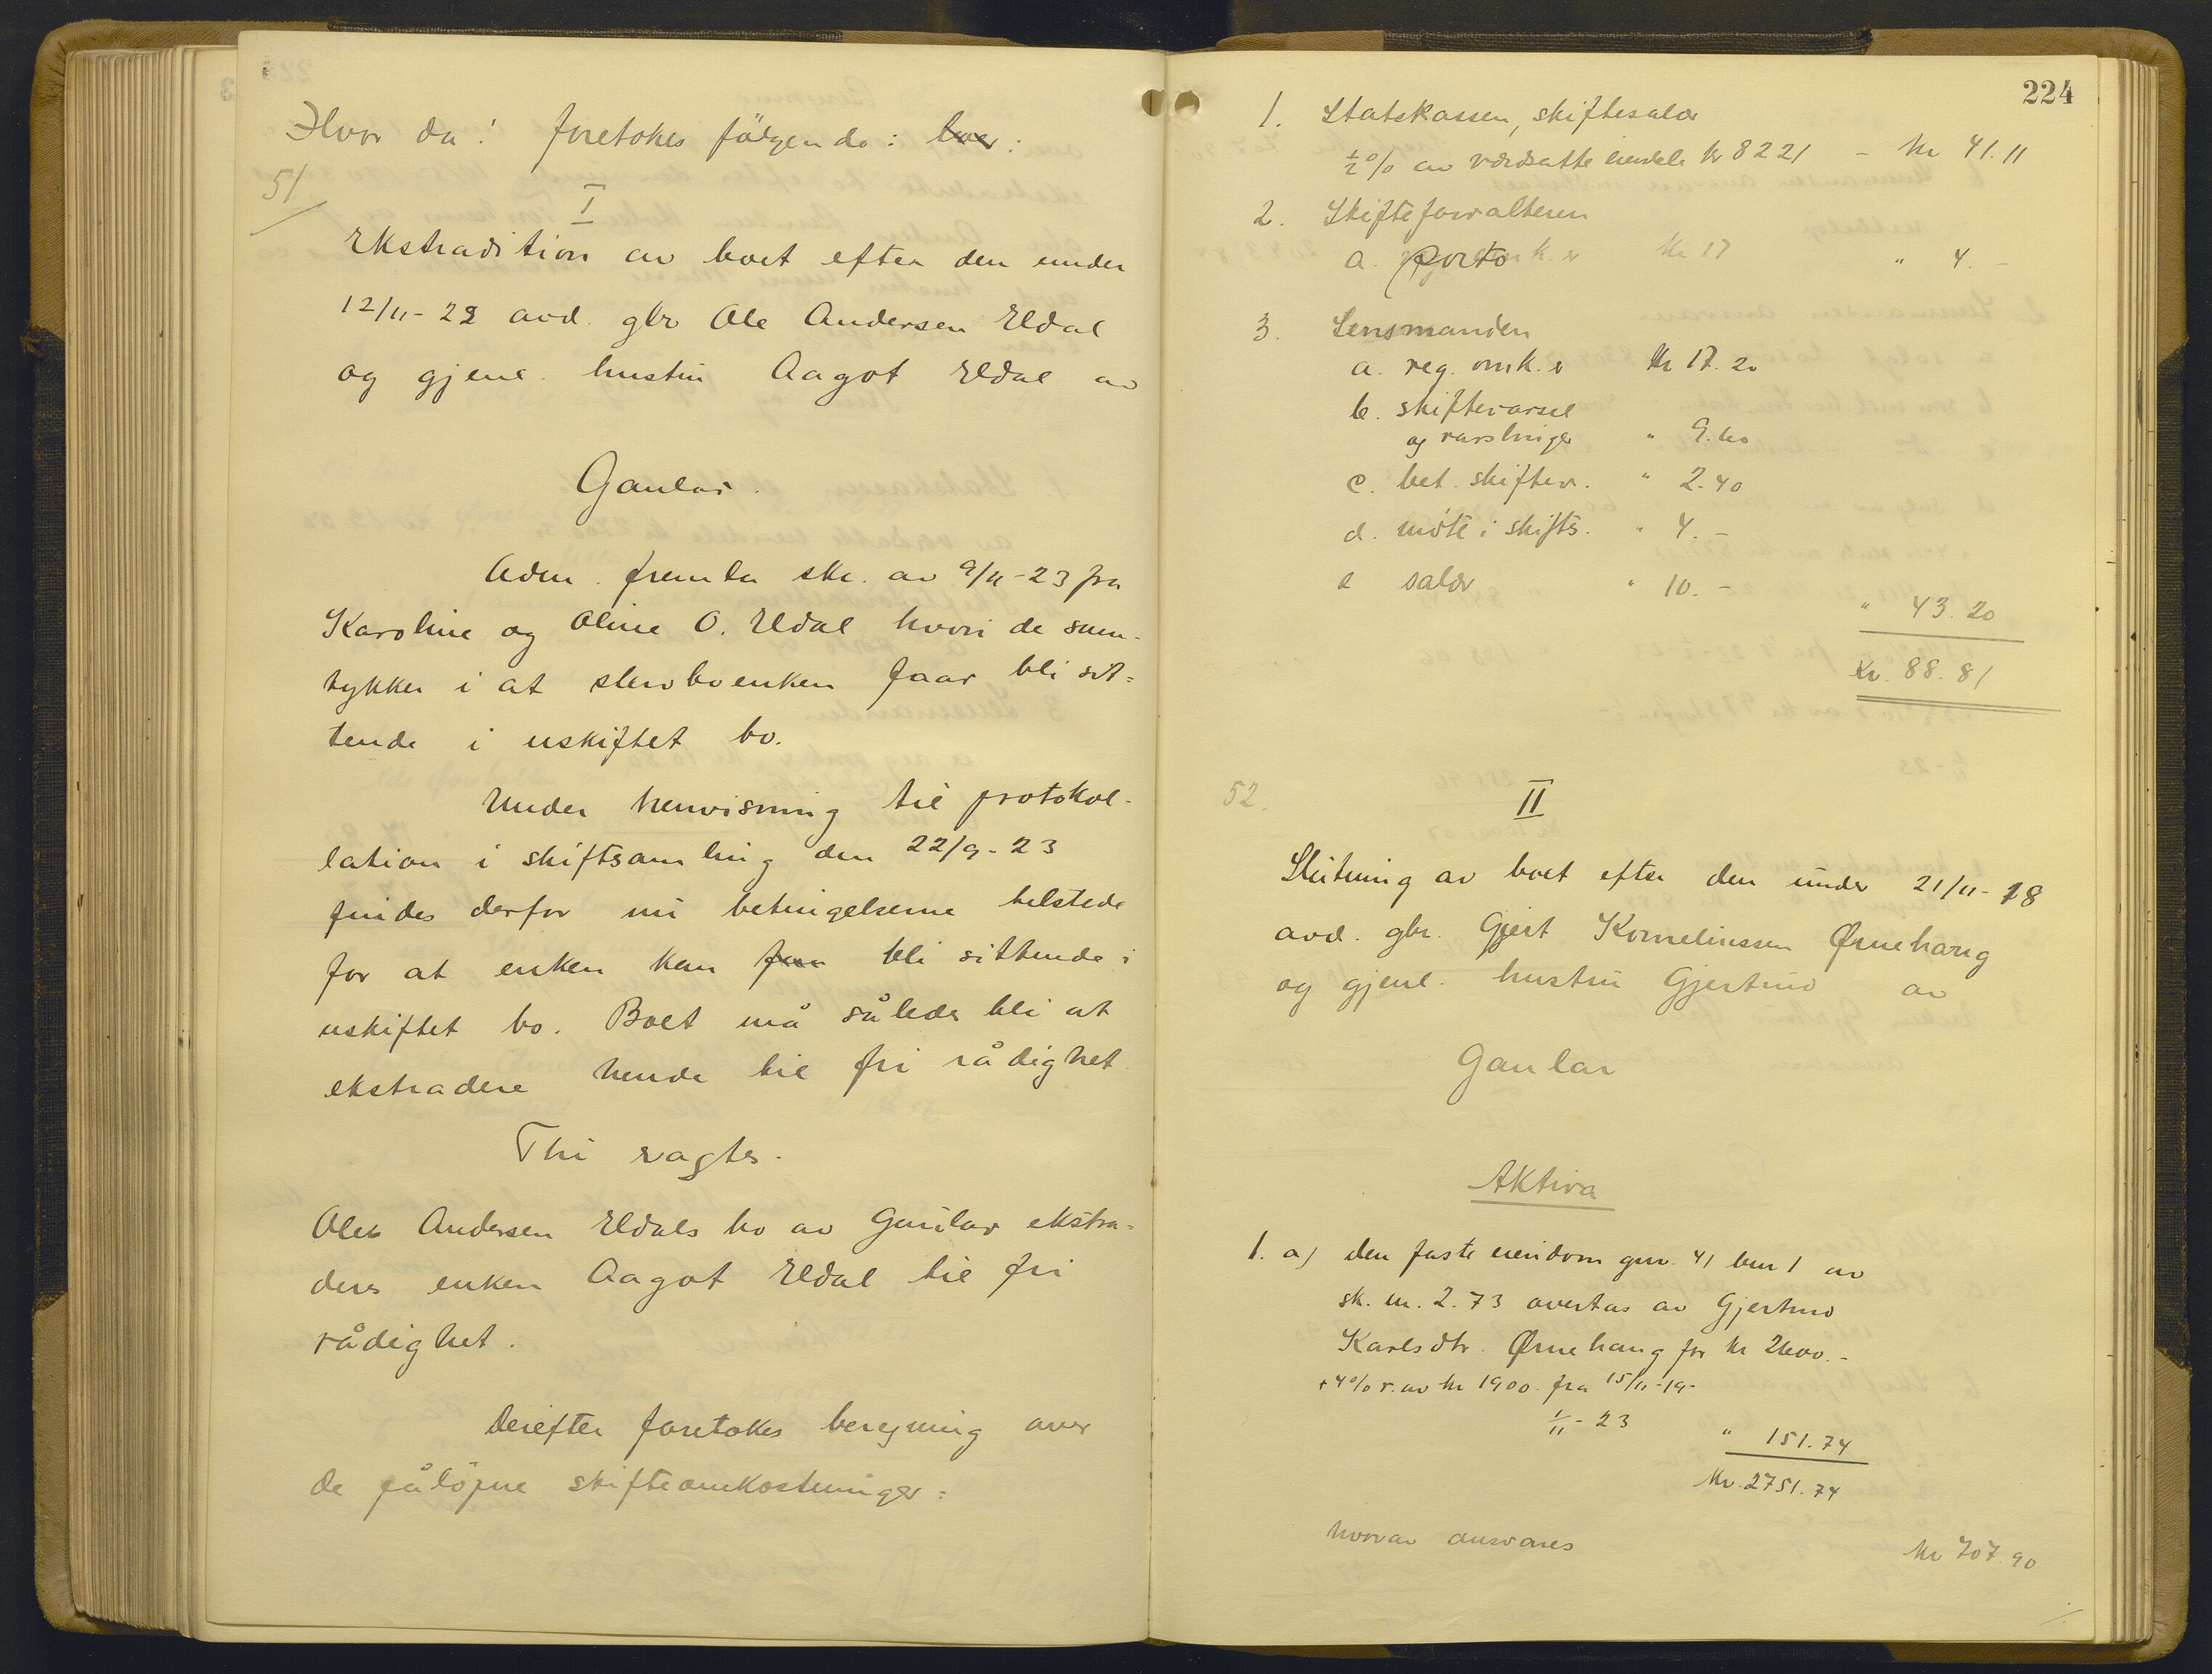 Hvor da! foretokes følgende:
51
I
Ekstradition av boet efter den under
12/11-22 avd. gbr Ole Andersen Eldal
og gjenl. hustru Aagot Eldal av
Gaular.
Adm. fremla skr. av 9/11-23 fra
Karoline og Oline O. Eldal hvori de sam-
tykker i at stervboenken faar bli sit=
tende i uskiftet bo.
Under henvisning til protokol-
lation i skiftsamling den 22/9-23
findes derfor nu betingelserne tilstede
for at enken kan faa bli sittende i
uskiftet bo. Boet må således bli at
ekstradere hende til fri rådighet.
Thi vagtes.
Ole Andersen Eldals bo av Gaular ekstra=
deres enken Aagot Eldal til fri
rådighet.
Derefter foretokes beregning over
de påløpne skifteomkostninger:
224
1. Statskassen, skiftesalær
1/2 % av værdsatte eiendele kr 8221 - kr 41.11
2. Skifteforvalteren
a. porto " 4. -
3. Lensmanden
a. reg. omk. kr 17.20
b. skiftevarsel
og varslinger " 9.60
c. bet. skiftev. " 2.40
d. møte i skifts. " 4. -
e salær " 10. -
" 43.20
Kr. 88.81
52.
II
Slutning av boet efter den under 21/11-18
avd. gbr. Gjert Korneliussen Ørnehaug
og gjenl. hustru Gjertrud av
Gaular
Aktiva
1. a) den faste eiendom gnr. 41 bnr 1 av
sk. m. 2.73 overtas av Gjertrud
Karlsdtr. Ørnehaug for kr 2600.-
+ 4% r. av kr 1900. fra 15/11-19-
1/11-23 " 151.74
Kr. 2751.74
hvorav ansvares kr 707.90